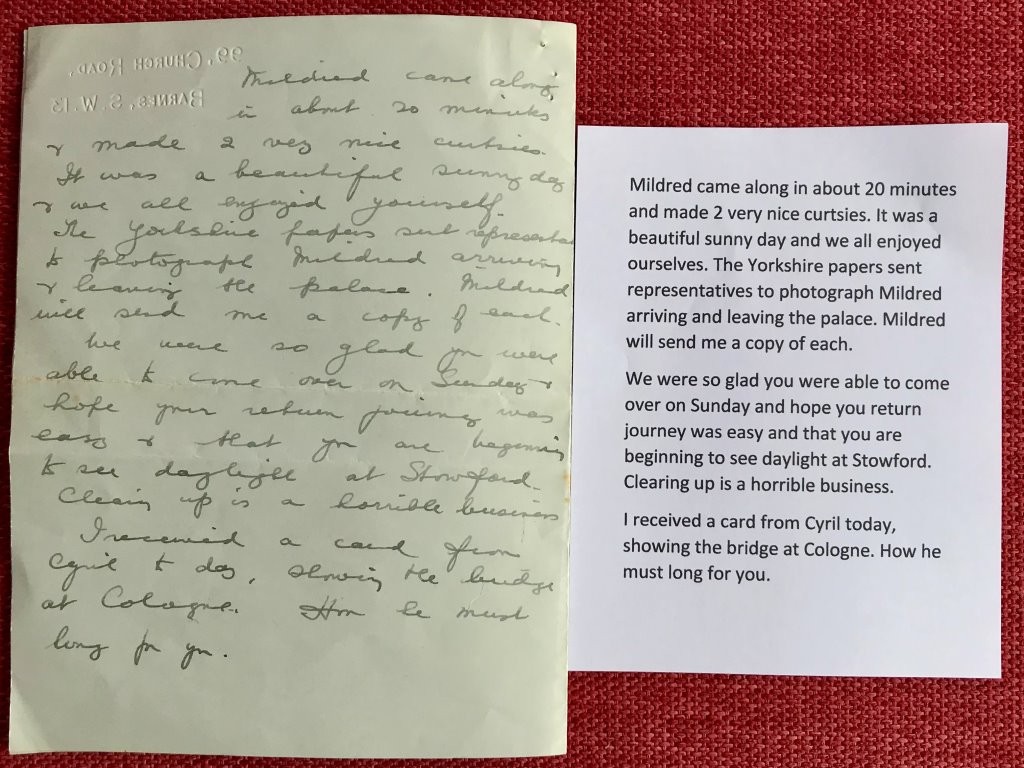 99, CHURCH ROAD,
BARNES, S.W. 13
Mildred came along,
in about 20 minutes
& made 2 very nice curtsies.
It was a beautiful sunny day
& we all enjoyed yourself.
The Yorkshire papers sent representa
to photograph Mildred arriving
& leaving the palace. Mildred
will send me a copy of each.
We were so glad you were
able to come over on Sunday &
hope your return journey was
easy & that you are beginning
to see daylight at Stowford.
Clearing up is a horrible business
I received a card from
Cyril to day, showing the bridge
at Cologne. How he must
long for you.
Mildred came along in about 20 minutes
and made 2 very nice curtsies. It was a
beautiful sunny day and we all enjoyed
ourselves. The Yorkshire papers sent
representatives to photograph Mildred
arriving and leaving the palace. Mildred
will send me a copy of each.
We were so glad you were able to come
over on Sunday and hope you return
journey was easy and that you are
beginning to see daylight at Stowford.
Clearing up is a horrible business.
I received a card from Cyril today,
showing the bridge at Cologne. How he
must long for you.